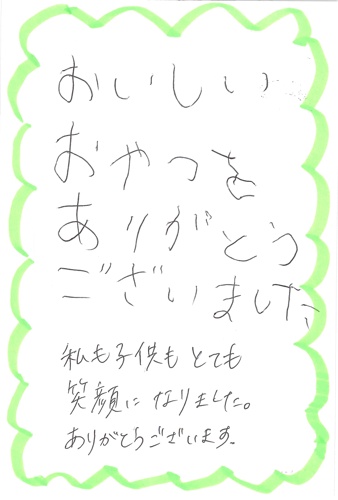 おいしい
おやつを
ありがとう
ございました
私も子供もとても
笑顔になりました。
ありがとうございます。